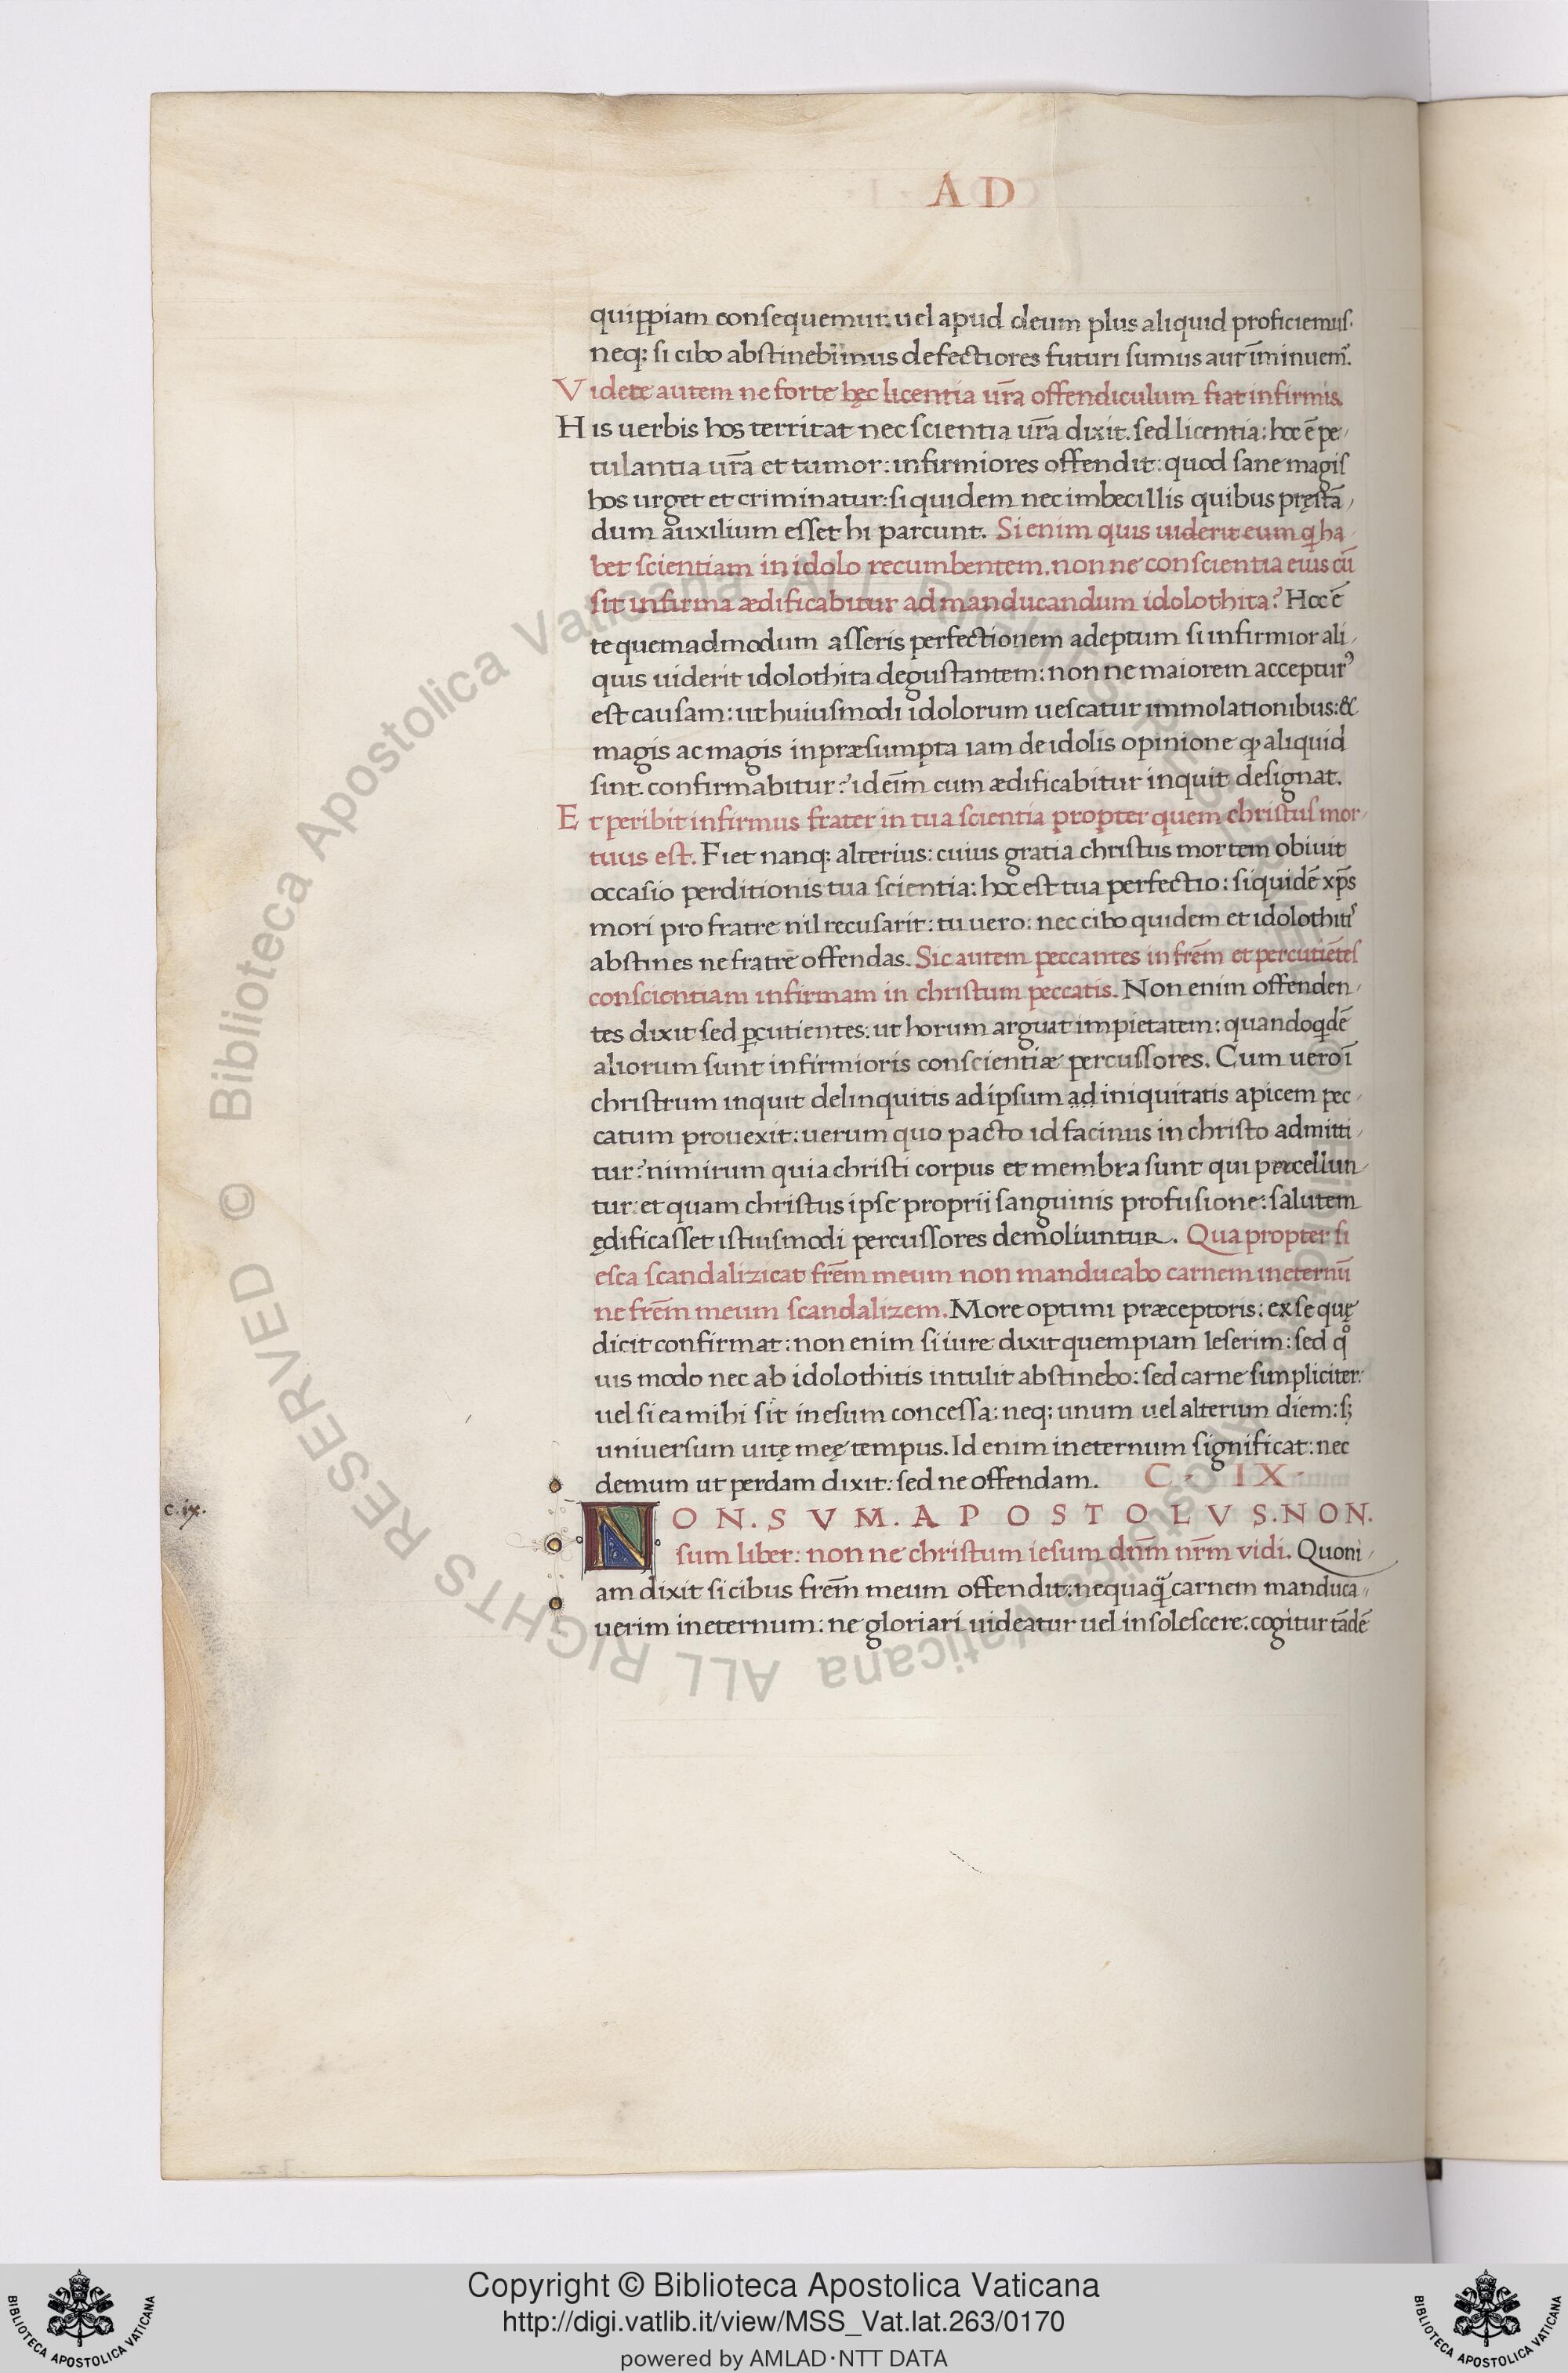 AD
quippiam consequemur: uel apud deum plus aliquid proficiemus.
neq; si cibo abstinebimus defectiores futuri sumus aut īminuem᷒.
Videte autem ne forte hęc licentia ur̄a offendiculum fiat infirmis.
His uerbis hos territat nec scientia ur̄a dixit. sed licentia: hoc ē pe-
tulantia ur̄a et tumor: infirmiores offendit: quod sane magis
hos urget et criminatur: siquidem nec imbecillis quibus pręstā-
dum auxilium esset hi parcunt. Si enim quis uiderit eum q̣ ha-
bet scientiam in idolo recumbentem. non ne conscientia eius cū
sit infirma ædificabitur ad manducandum idolothita? Hoc ē
te quemadmodum asseris perfectionem adeptum si infirmior ali-
quis uiderit idolothita degustantem: non ne maiorem acceptur᷒
est causam: ut huiusmodi idolorum uescatur immolationibus: &
magis ac magis in præsumpta iam de idolis opinione ꝙ aliquid
sint. confirmabitur? id eīm cum ædificabitur inquit designat.
Et peribit infirmus frater in tua scientia propter quem christus mor-
tuus est. Fiet nanq; alterius: cuius gratia christus mortem obiuit
occasio perditionis tua scientia: hoc est tua perfectio: siquidē xp̄s
mori pro fratre nil recusarit: tu uero: nec cibo quidem et idolothit᷒
abstines ne fratrē offendas. Sic autem peccantes in frēm et percutiētes
conscientiam infirmam in christum peccatis. Non enim offenden-
tes dixit sed ꝑcutientes: ut horum arguat impietatem: quandoqdē
aliorum sunt infirmioris conscientiæ percussores. Cum uero ī
christrum inquit delinquitis ad ipsum ad iniquitatis apicem pec-
catum prouexit: uerum quo pacto id facinus in christo admitti-
tur? nimirum quia christi corpus et membra sunt qui percellun-
tur: et quam christus ipse proprii sanguinis profusione: salutem
ędificasset istiusmodi percussores demoliuntur. Qua propter si
esca scandalizicat frēm meum non manducabo carnem in eternū
ne frēm meum scandalizem. More optimi præceptoris: ex se quę
dicit confirmat: non enim si iure dixit quempiam leserim: sed qͦ
uis modo nec ab idolothitis intulit abstinebo: sed carne simpliciter:
uel si ea mihi sit in esum concessa: neq; unum uel alterum diem: s;
uniuersum uitę meę tempus. Id enim in eternum significat: nec
demum ut perdam dixit: sed ne offendam. C. IX.
c. ix.
NON. SVM. APOSTOLVS. NON.
sum liber: non ne christum iesum dnm̄ nrm̄ vidi. Quoni-
am dixit si cibus frēm meum offendit: nequaq̄ carnem manduca-
uerim in eternum: ne gloriari uideatur uel insolescere. cogitur tādē
Copyright © Biblioteca Apostolica Vaticana
http://digi.vatlib.it/view/MSS_Vat.lat.263/0170
powered by AMLAD·NTT DATA
BIBLIOTECA APOSTOLICA VATICANA
BIBLIOTECA APOSTOLICA VATICANA
© Biblioteca Apostolica Vaticana ALL RIGHTS RESERVED